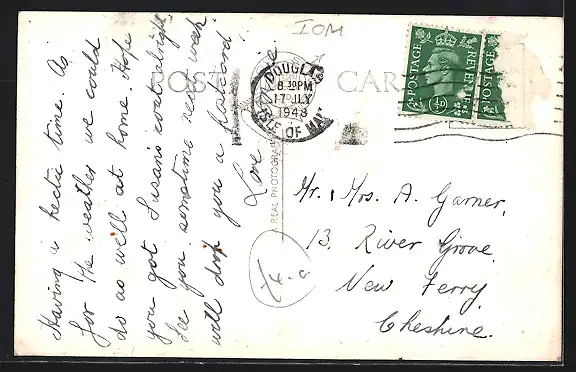 IOM
POST CARD
DOUGLAS
8 30PM
17 JLY
1948
ISLE OF MAN
POSTAGE
REVENUE
½D
POSTAGE
Having a hectic time. As
for the weather we could
do as well at home. Hope
you got Susan's coat alright.
See you sometime next week.
will drop you a postcard
Love
A REAL PHOTOGRAPH
Mr. Mrs. A. Garner,
13. River Grove,
New Ferry,
Cheshire.